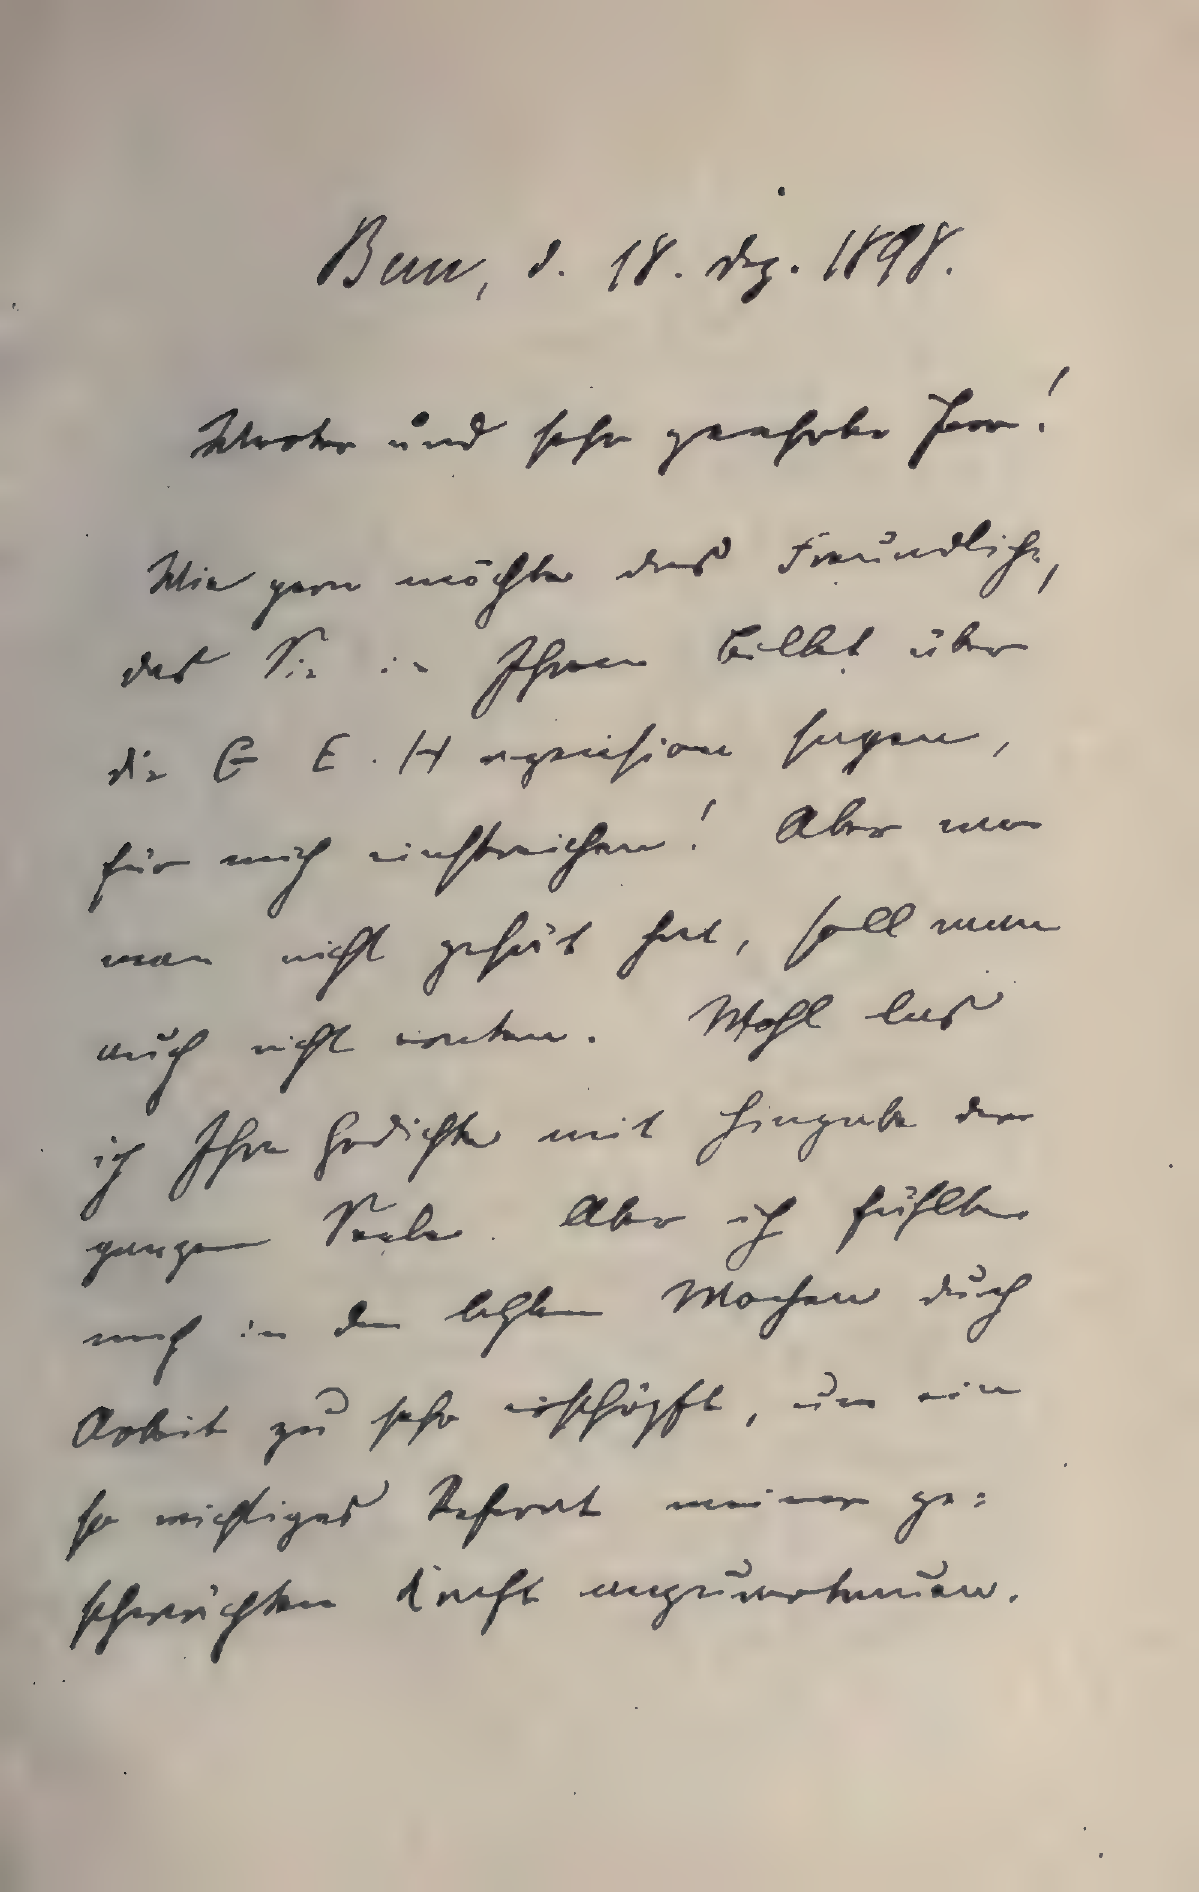 Bern, d. 18. Dez. 1898.
Werter und sehr geehrter Herr!
Wie gern möchte das Freundliche,
das Sie in Ihrem Billet über
die G E. H sagen,
für mich einstreichen! Aber wo
man nicht gesät hat, soll man
auch nicht ernten. Wohl las
ich Ihre Gedichte mit Hingabe der
ganzen Seele. Aber ich fühlte
mich in den letzten Wochen durch
Arbeit zu sehr erschöpft, um ein
so wichtiges Referat meiner ge=
schwächten Kraft anzuvertrauen.